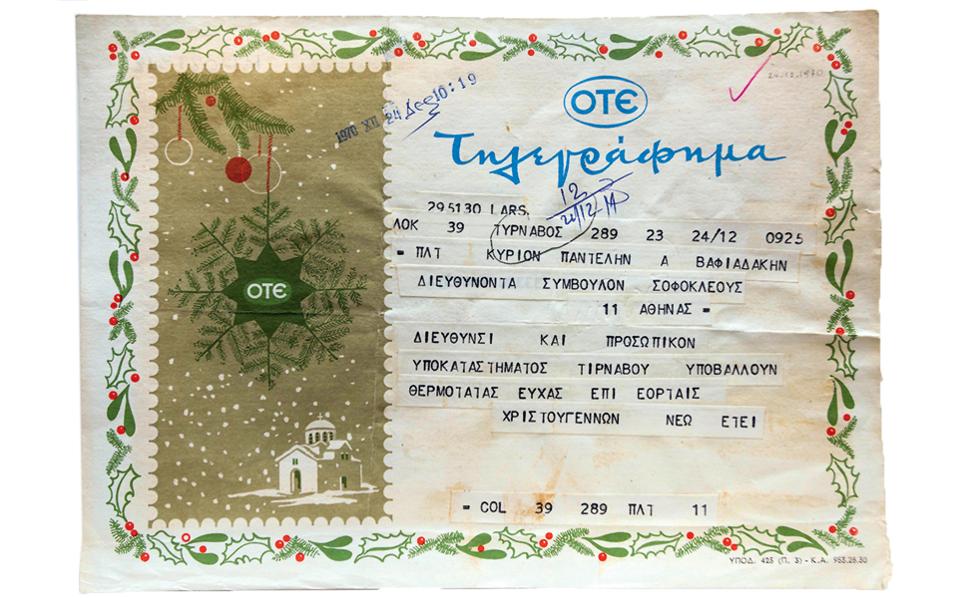 24.12.1970
ΟΤΕ
1970 XII 24 Δεc 10:19
Τηλεγράφημα
12
295130 LARS.
ΛΟΚ 39 ΤΥΡΝΑΒΟΣ 289 23 24/12 0925
= ΠΛΤ ΚΥΡΙΟΝ ΠΑΝΤΕΛΗΝ Α ΒΑΦΙΑΔΑΚΗΝ
ΔΙΕΥΘΥΝΟΝΤΑ ΣΥΜΒΟΥΛΟΝ ΣΟΦΟΚΛΕΟΥΣ
11 ΑΘΗΝΑΣ =
ΟΤΕ
ΔΙΕΥΘΥΝΣΙ ΚΑΙ ΠΡΟΣΩΠΙΚΟΝ
ΥΠΟΚΑΤΑΣΤΗΜΑΤΟΣ ΤΙΡΝΑΒΟΥ ΥΠΟΒΑΛΛΟΥΝ
ΘΕΡΜΟΤΑΤΑΣ ΕΥΧΑΣ ΕΠΙ ΕΟΡΤΑΙΣ
ΧΡΙΣΤΟΥΓΕΝΝΩΝ ΝΕΩ ΕΤΕΙ
= COL 39 289 ΠΛΤ 11
ΥΠΟΔ. 425 (Π. 3) - Κ.Α. 953.28.30